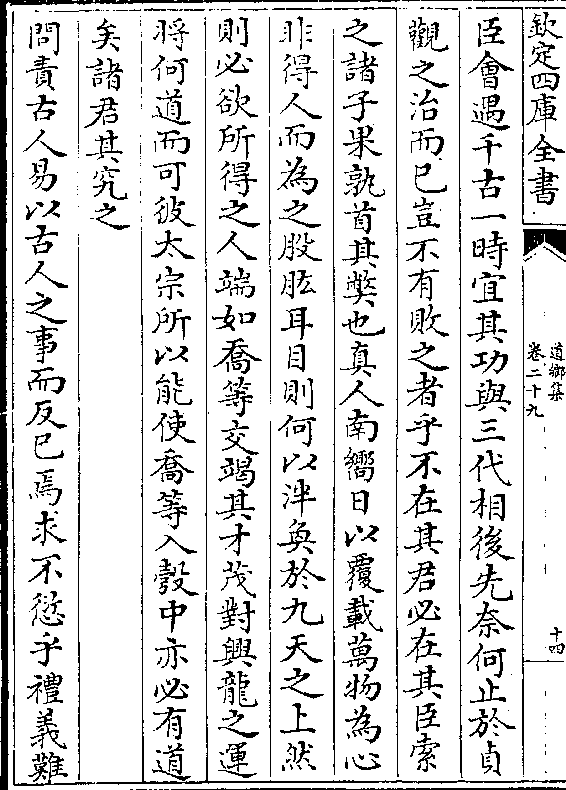 欽定四庫全書
道鄉集
卷二十九
十四
臣會遇千古一時宜其功與三代相後先奈何止於貞
觀之治而已豈不有敗之者乎不在其君必在其臣索
之諸子果孰首其弊也真人南嚮日以覆載萬物為心
非得人而為之股肱耳目則何以泮奐於九天之上然
則必欲所得之人端如喬等交竭其才茂對興龍之運
將何道而可彼太宗所以能使喬等入彀中亦必有道
矣諸君其究之
問責古人易以古人之事而反已焉求不愆乎禮義難